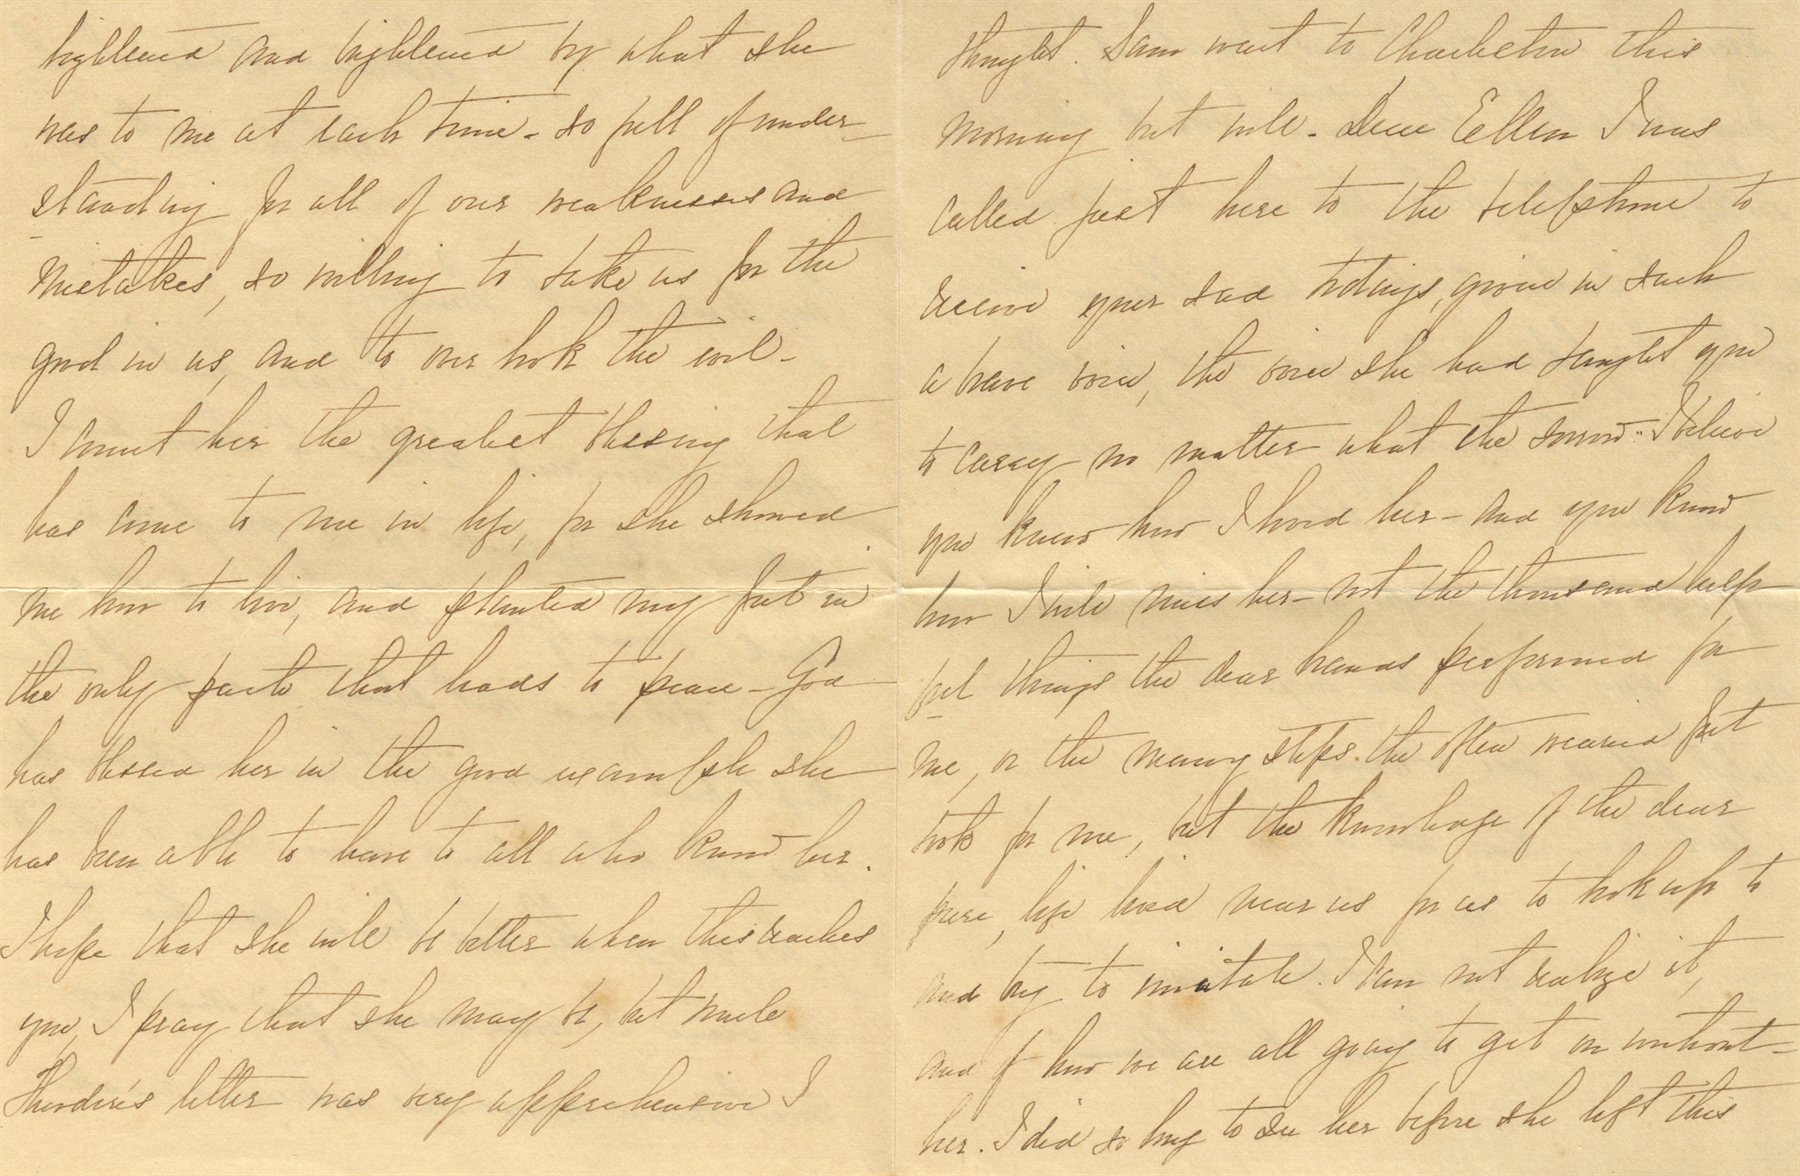 brightened and brightened by what she
was to me at each time - so full of under-
standing for all of our weaknesses and
mistakes, so willing to take us for the
good in us, and to over look the evil -
I count her the greatest blessing that
has come to me in life, for she showed
me how to live, and planted my feet in
the only path that leads to peace - God
has blessed her in the good example she
has been able to leave to all who know her.
I hope that she will be better when this reaches
you, I pray that she may be, but
letter was very apprehensive I
thought. Sam went to Charleston this
morning but will - Dear Ellen I was
called just here to the telephone to
receive your sad tidings, given in such
a brave voice, the voice she had taught you
to carry no matter what the sorrow. I believe
you know how I loved her - and you know
how I will miss her - not the thousand help
ful things the dear hands performed for
me, or the many steps the often wearied feet
took for me, but the knowledge of the dear
pure, life lived near us for us to look up to
and try to imitate. I can not realize it,
and of how we are all going to get on without
her. I did so long to see her before she left this